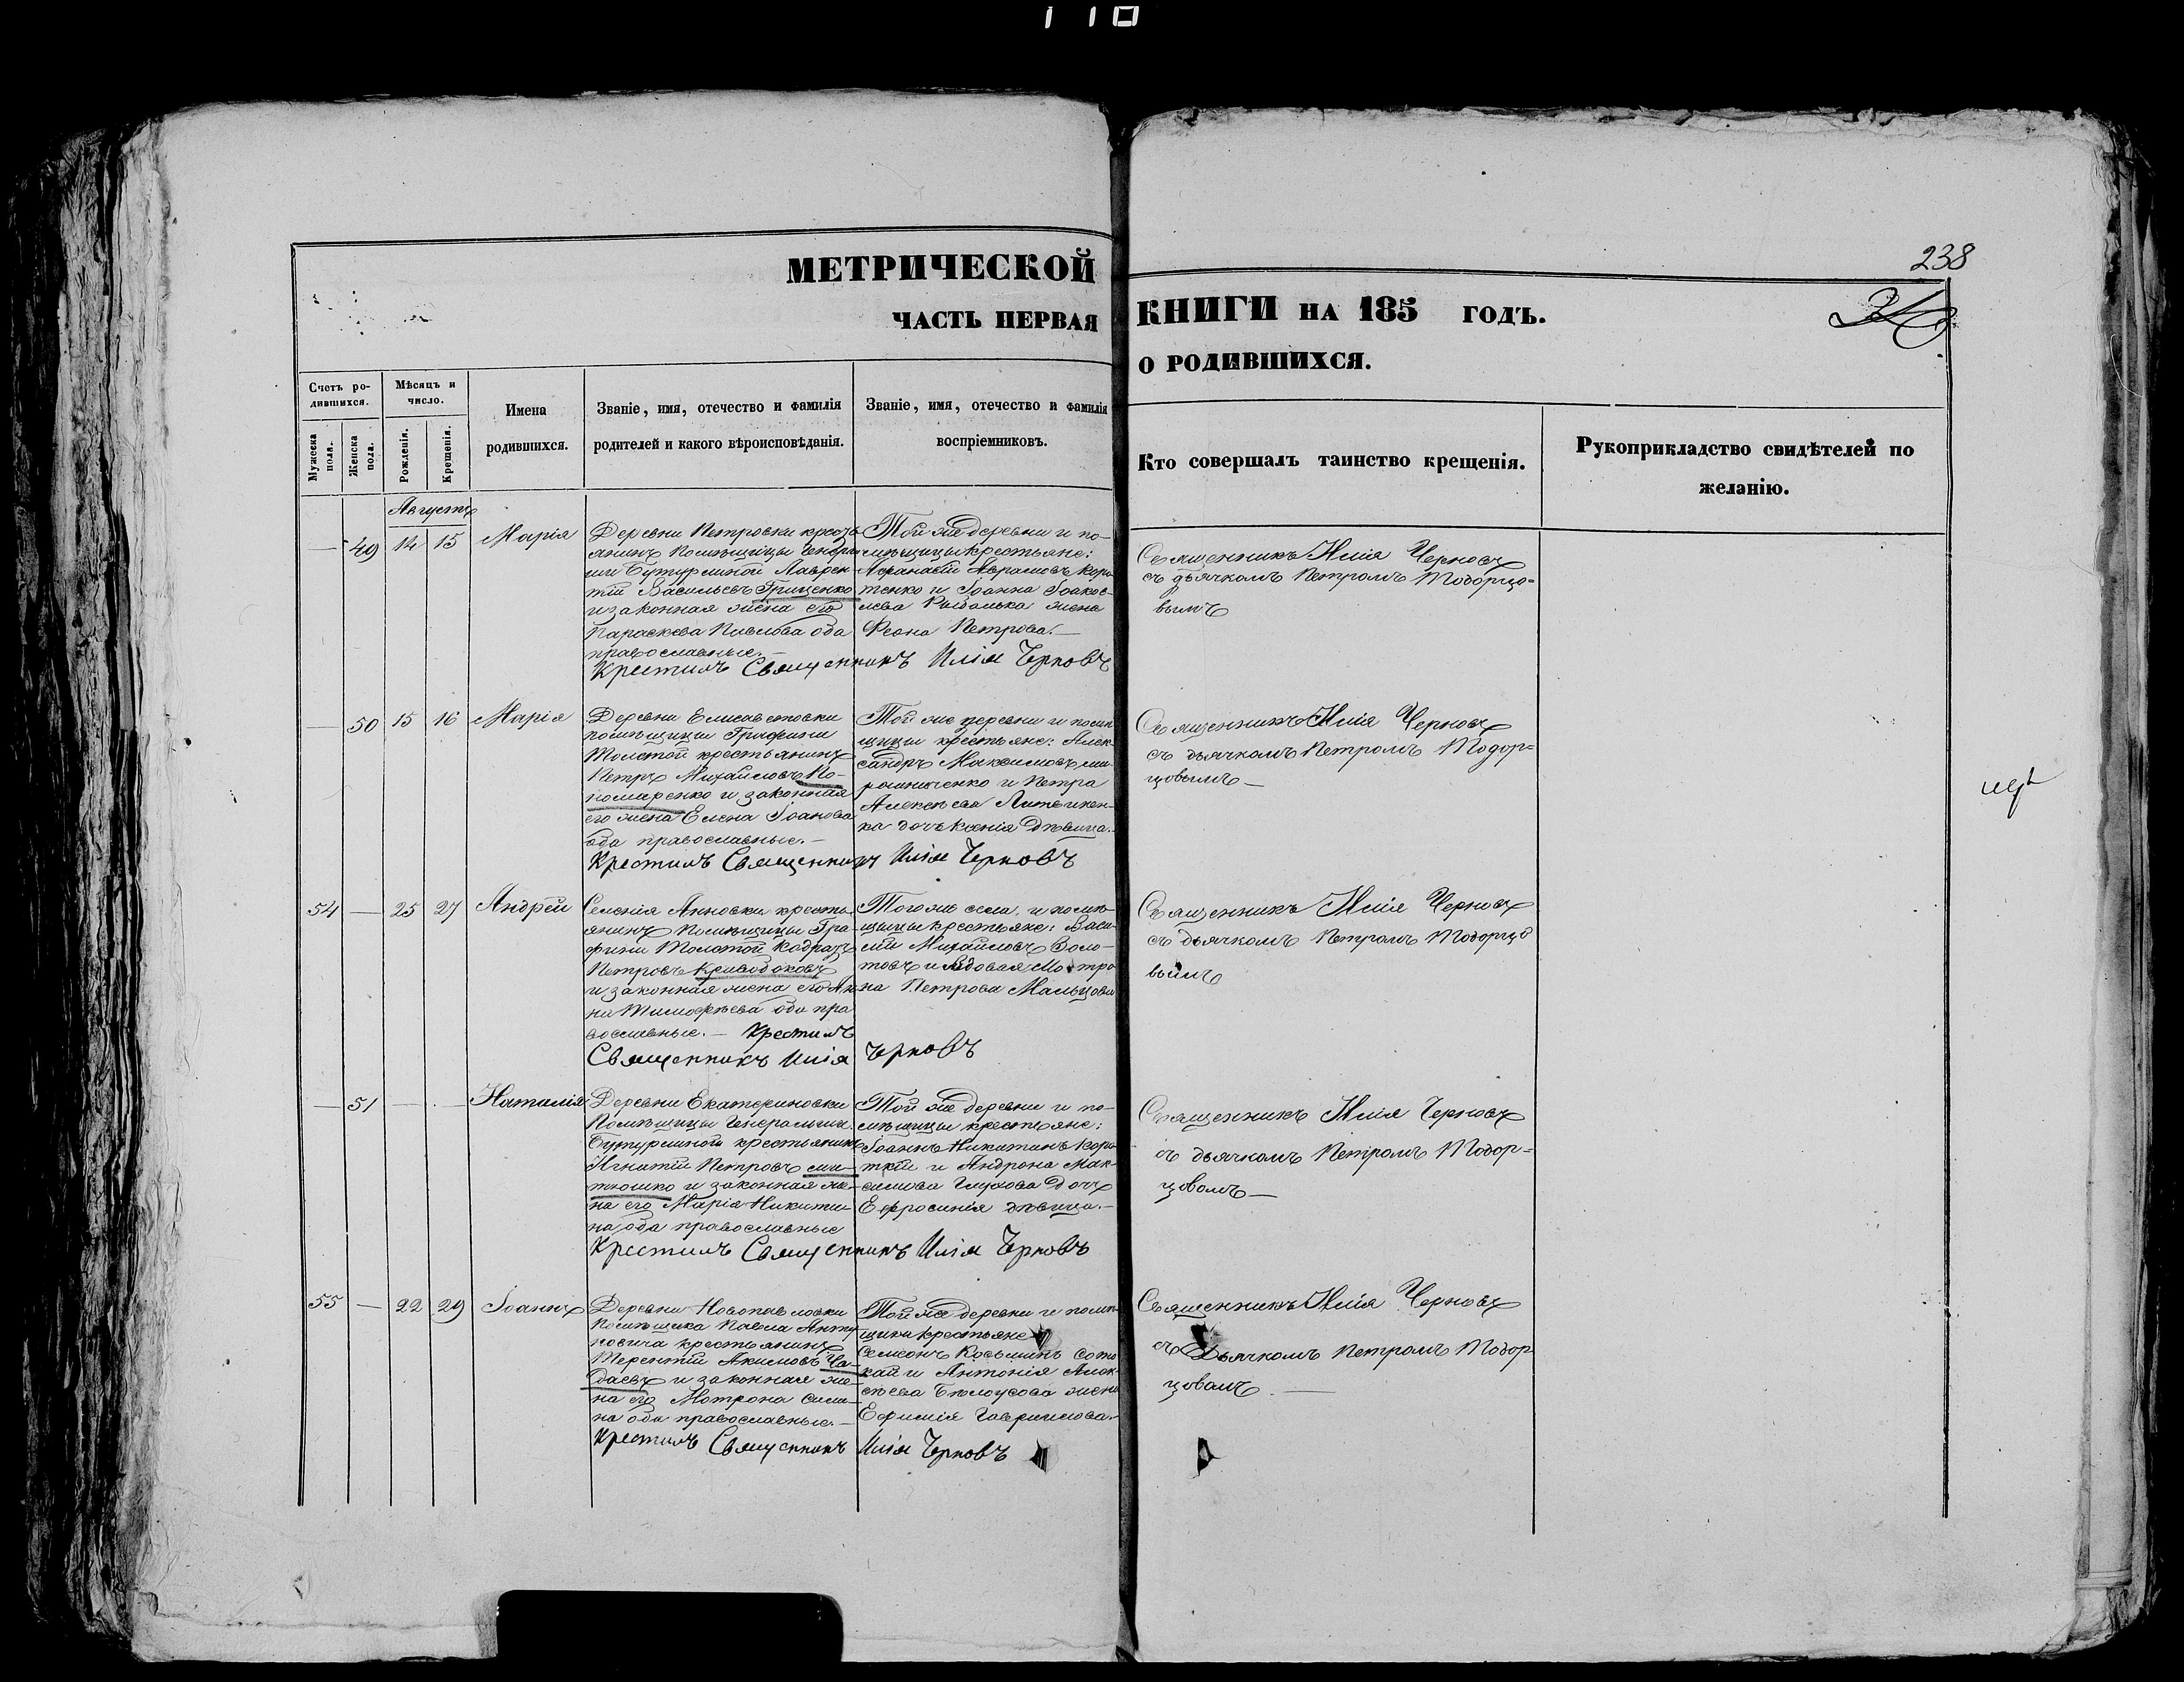 110
238
МЕТРИЧЕСКОЙ
КНИГИ НА 185 ГОДЪ.
ЧАСТЬ ПЕРВАЯ
О РОДИВШИХСЯ.
Счетъ ро-
дившихся.
Мужеска пола.
Женска пола.
Мѣсяцъ и
число.
Рожденія.
Крещенія.
Имена
родившихся.
Званіе, имя, отечество и фамилія
родителей и какого вѣроисповѣданія.
Званіе, имя, отечество и фамилія
воспріемниковъ.
Кто совершалъ таинство крещенія.
Рукоприкладство свидѣтелей по
желанію.
Августъ
— 49 14 15 Марія
Деревни Петровки кресть-
янинъ Помѣщицы Генерал-
ши Бутурлиной Лаврен-
тій Васильевъ Гриценко
и законная жена его
Параскева Павлова оба
православные.—
Той же деревни и по-
мѣщицы крестьяне:
Афанасій Аврамовъ Коро-
тенко и Іоанна Іоаков-
лева Рыбалка жена
Феона Петрова.—
Крестилъ Священникъ Илія Черновъ
Священникъ Илія Черновъ
съ дьячкомъ Петромъ Тодорцо-
вымъ
— 50 15 16 Марія
Деревни Елисаветовки
помѣщицы Графини
Толстой крестьянинъ
Петръ Михайловъ По-
номаренко и законная
его жена Елена Іоанова
оба православные.—
Той же деревни и помѣ-
щицы крестьяне: Алек-
сандръ Максимовъ Ми-
рошниченко и Петра
Алексѣева
ка дочь Ксенія дѣвица.
Крестилъ Священникъ Илія Черновъ
Священникъ Илія Черновъ
съ дьячкомъ Петромъ Тодор=
цовымъ—
54 — 25 27 Андрей
Селенія Анновки кресть-
янинъ Помѣщицы Гра-
фини Толстой Кодратъ
Петровъ Кривобоковъ
и законная жена его Ан-
на Тимофѣева оба пра
вославные.— Крестилъ
Священникъ Илія Черновъ
Того же села, и помѣ-
щицы крестьяне: Васи-
лій Михайловъ Золо-
товъ и вдовая Мотро
на Петрова Мальцова
Священникъ Илія Черновъ
съ дьячкомъ Петромъ Тодорцо
вымъ
— 51 — — Наталія
Деревни Екатериновки
Помѣщицы Генеральши
Бутурлиной крестьянинъ
Игнатій Петровъ Ми-
тюшко и законная же-
на его Марія Никити-
на оба православные
Той же деревни и по-
мѣщицы крестьяне:
Іоаннъ Никитинъ Коро-
ткій и Андрона Мак-
симова Глухова дочь
Ефросинія дѣвица.—
Крестилъ Священникъ Илія Черновъ
Священникъ Илія Черновъ
съ дьячкомъ Петромъ Тодор=
цовомъ—
55 — 22 29 Іоаннъ
Деревни Новопавловки
Помѣщика Павла Анту-
новича крестьянинъ
Терентій Акимовъ Ча-
даевъ и законная же-
на его Мотрона Сави-
на оба православные.—
Той же деревни и помѣ-
щика крестьяне
Семеонъ Косьминъ Сото
кай и Антонія Алек-
сѣева Бѣлоусова жена
Ефимія Гаврилова.
Крестилъ Священникъ Илія Черновъ
Священникъ Илія Черновъ
съ Дьячкомъ Петромъ Тодор
цовомъ.—